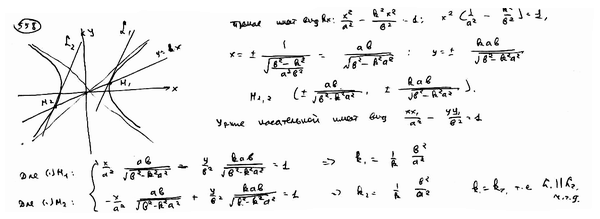 558
y
x
y=kx
L₂
L₁
M₁
M₂
Прямая имеет вид kx: x²/a² - k²x²/b² = 1; x² (1/a² - k²/b²) = 1,
x = ± 1/√((b² - k²)/(a²b²)) = ab/√(b² - k²a²) ; y = ± kab/√(b² - k²a²)
M₁,₂ (± ab/√(b² - k²a²), ± kab/√(b² - k²a²)).
Ур-ние касательной имеет вид xx₁/a² - yy₁/b² = 1
Для (·) M₁: { x/a² ab/√(b² - k²a²) - y/b² kab/√(b² - k²a²) = 1 ⇒ k₁ = 1/k b²/a²
Для (·) M₂: { -x/a² ab/√(b² - k²a²) + y/b² kab/√(b² - k²a²) = 1 ⇒ k₂ = 1/k b²/a² k₁ = k₂, т.е. L₁ || L₂
ч.т.д.